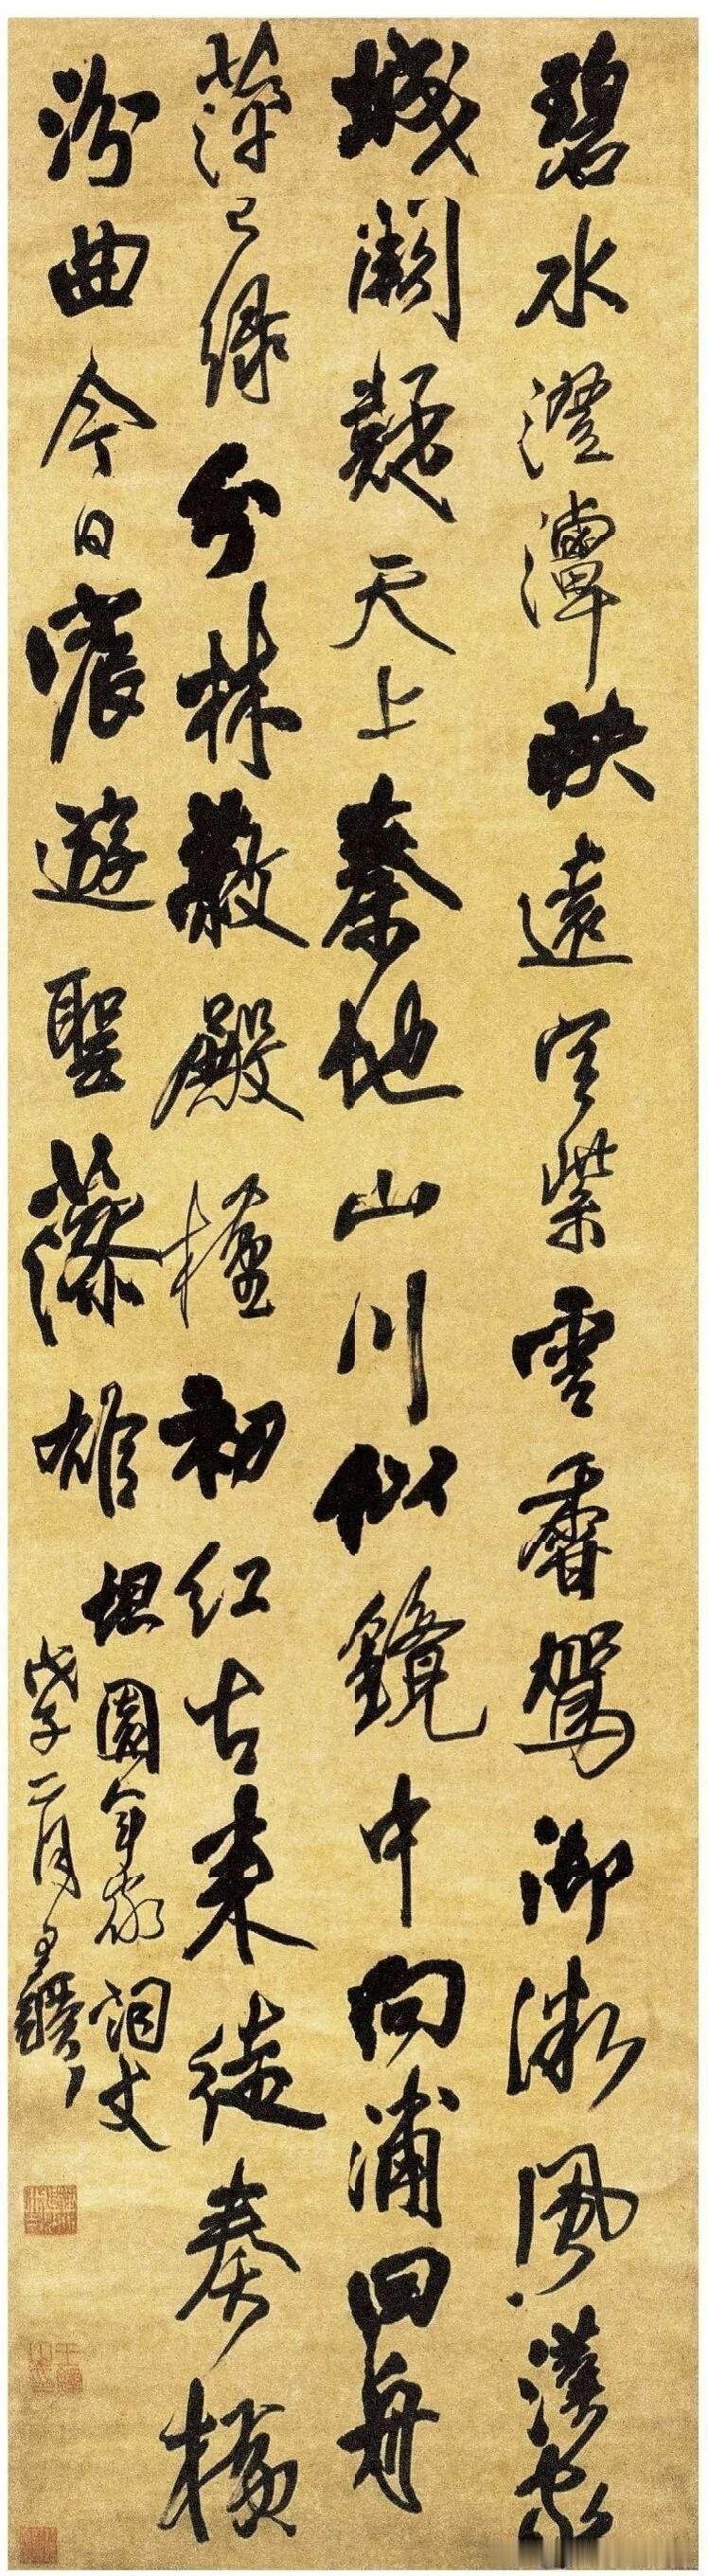 碧水澄潭映遠空紫雲香駕御微風漢家
城闕疑天上秦地山川似鏡中向浦回舟
萍已綠分林蔽殿槿初紅古來徒奏橫
汾曲今日宸遊聖藻雄
坦園年家詞丈
戊子二月王鐸